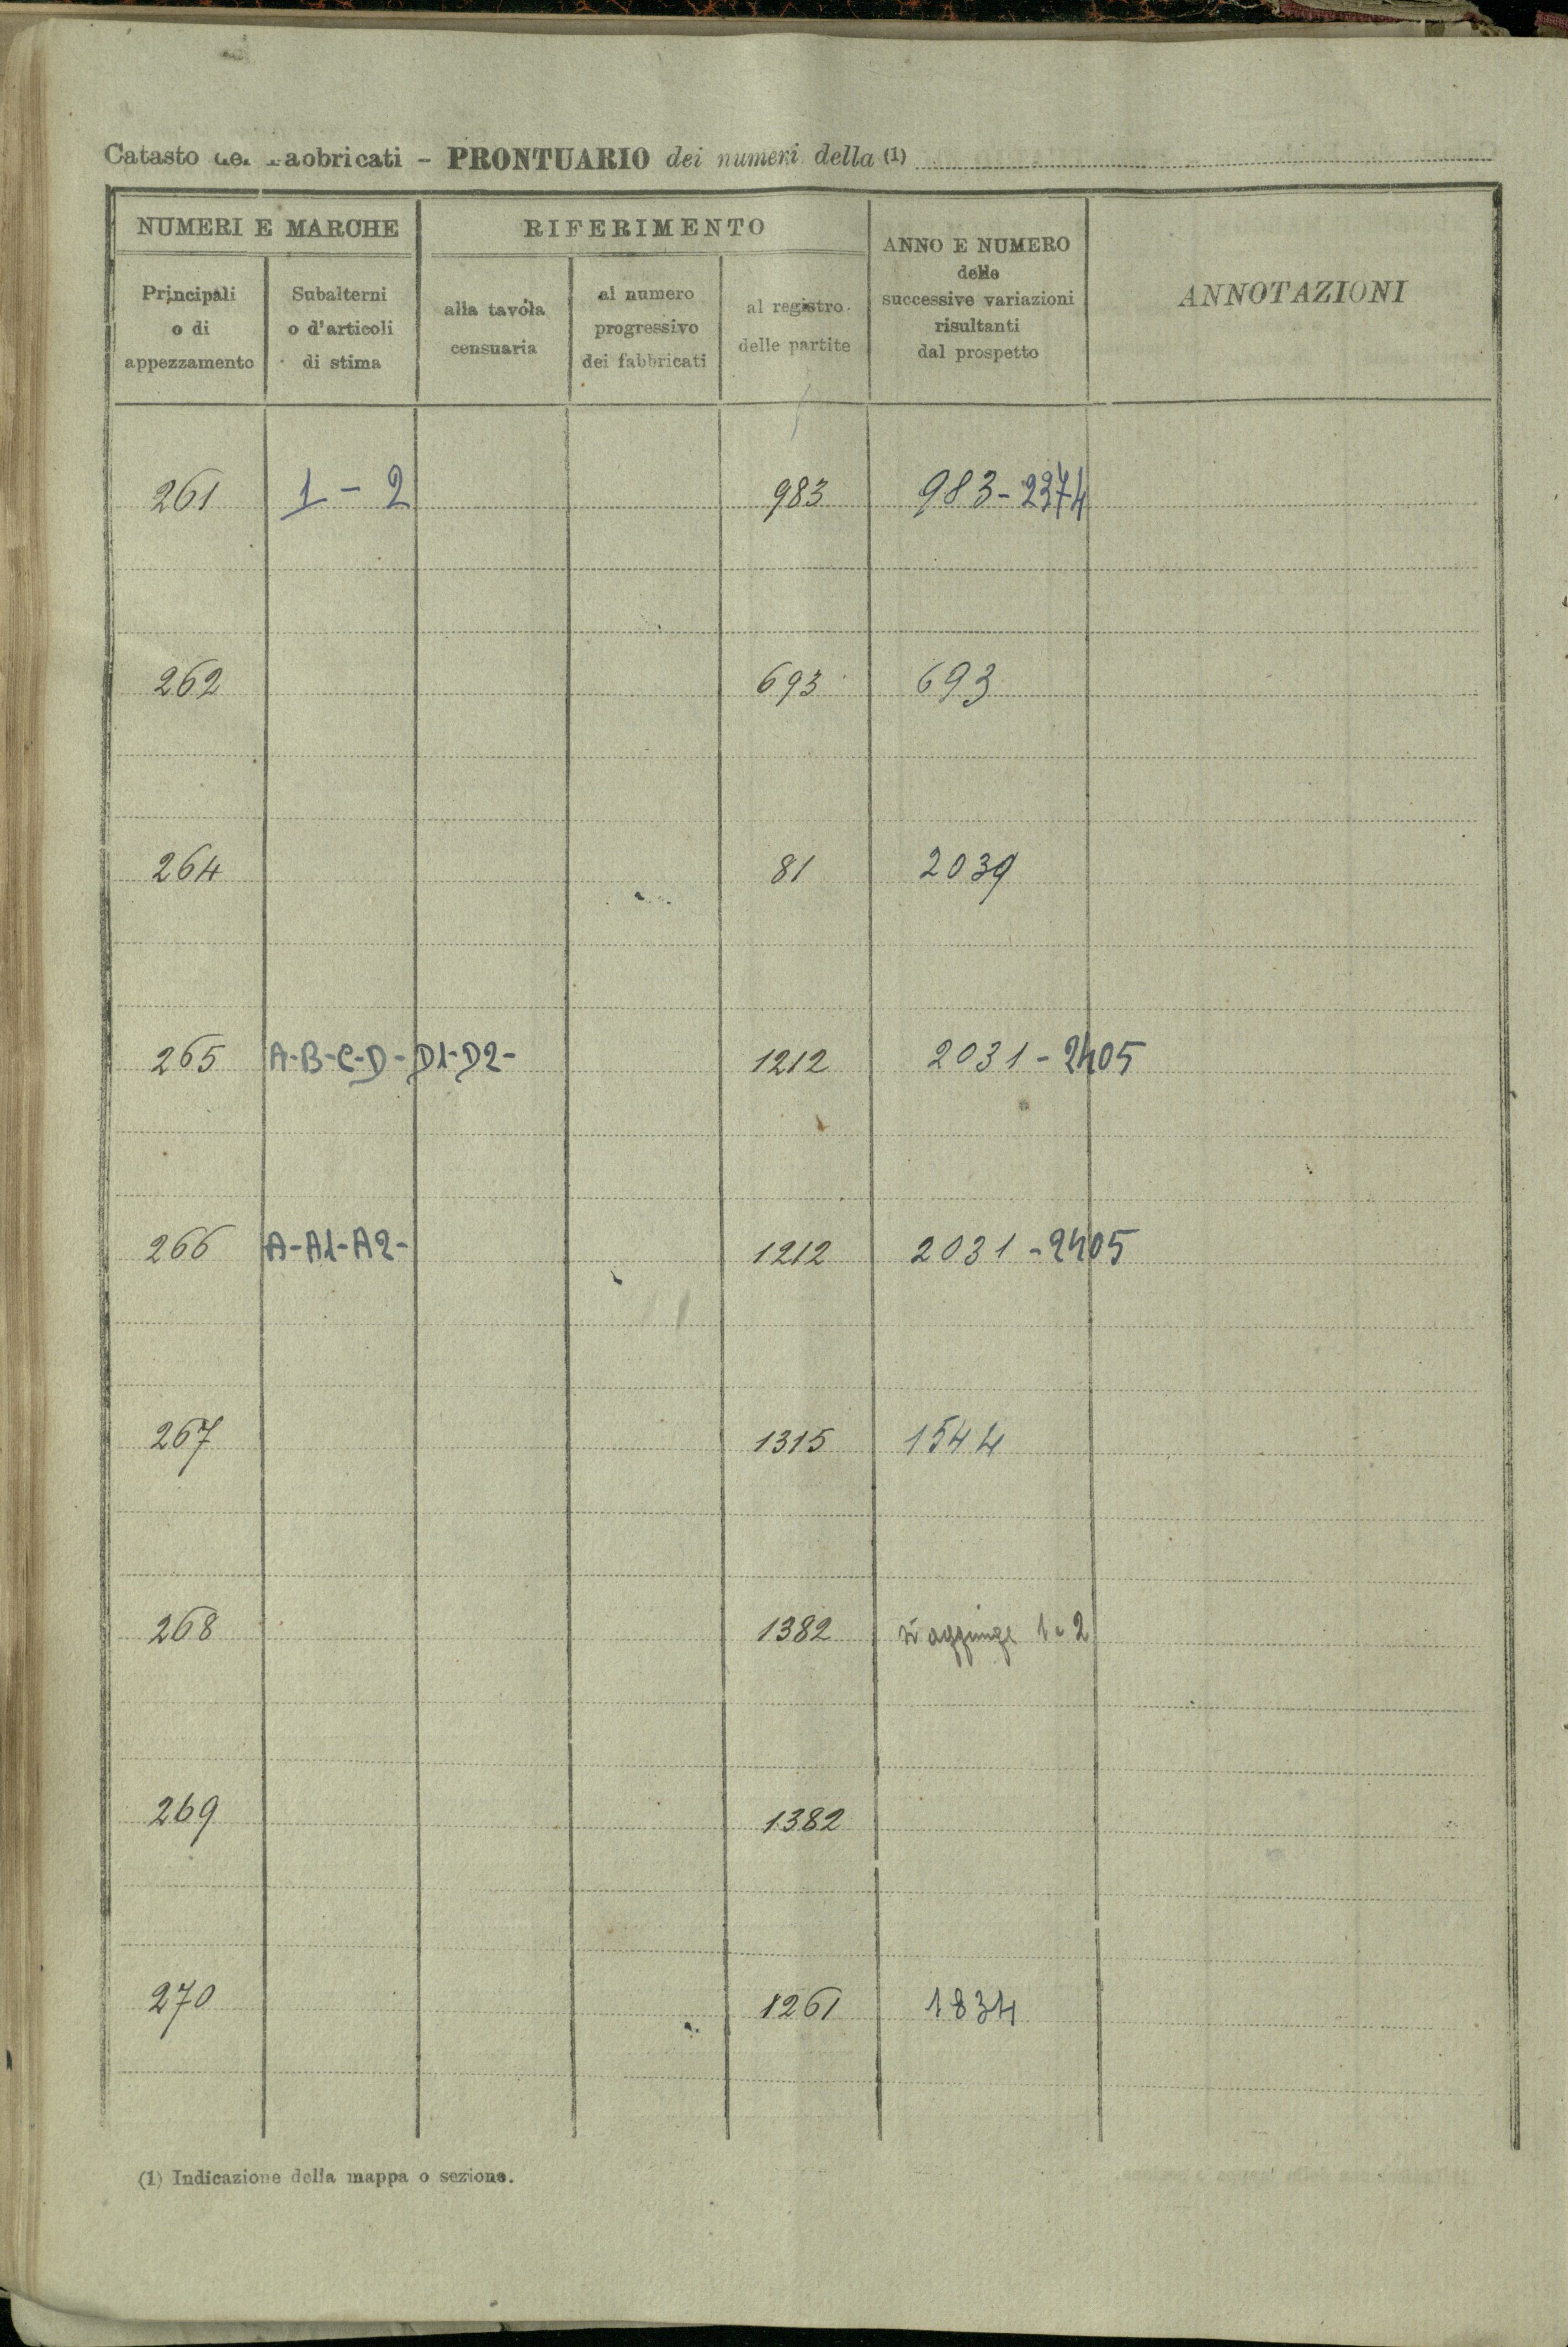 Catasto dei Fabbricati - PRONTUARIO dei numeri della (1)
NUMERI E MARCHE RIFERIMENTO ANNO E NUMERO delle successive variazioni risultanti dal prospetto ANNOTAZIONI
Principali o di appezzamento Subalterni o d'articoli di stima alla tavola censuaria al numero progressivo dei fabbricati al registro delle partite
261 1 - 2 983 983 - 2374
262 693 693
264 81 2039
265 A-B-C-D-D1-D2- 1212 2031 - 2405
266 A-A1-A2- 1212 2031 - 2405
267 1315 1544
268 1382 si aggiunge 1 e 2
269 1382
270 1261 1834
(1) Indicazione della mappa o sezione.